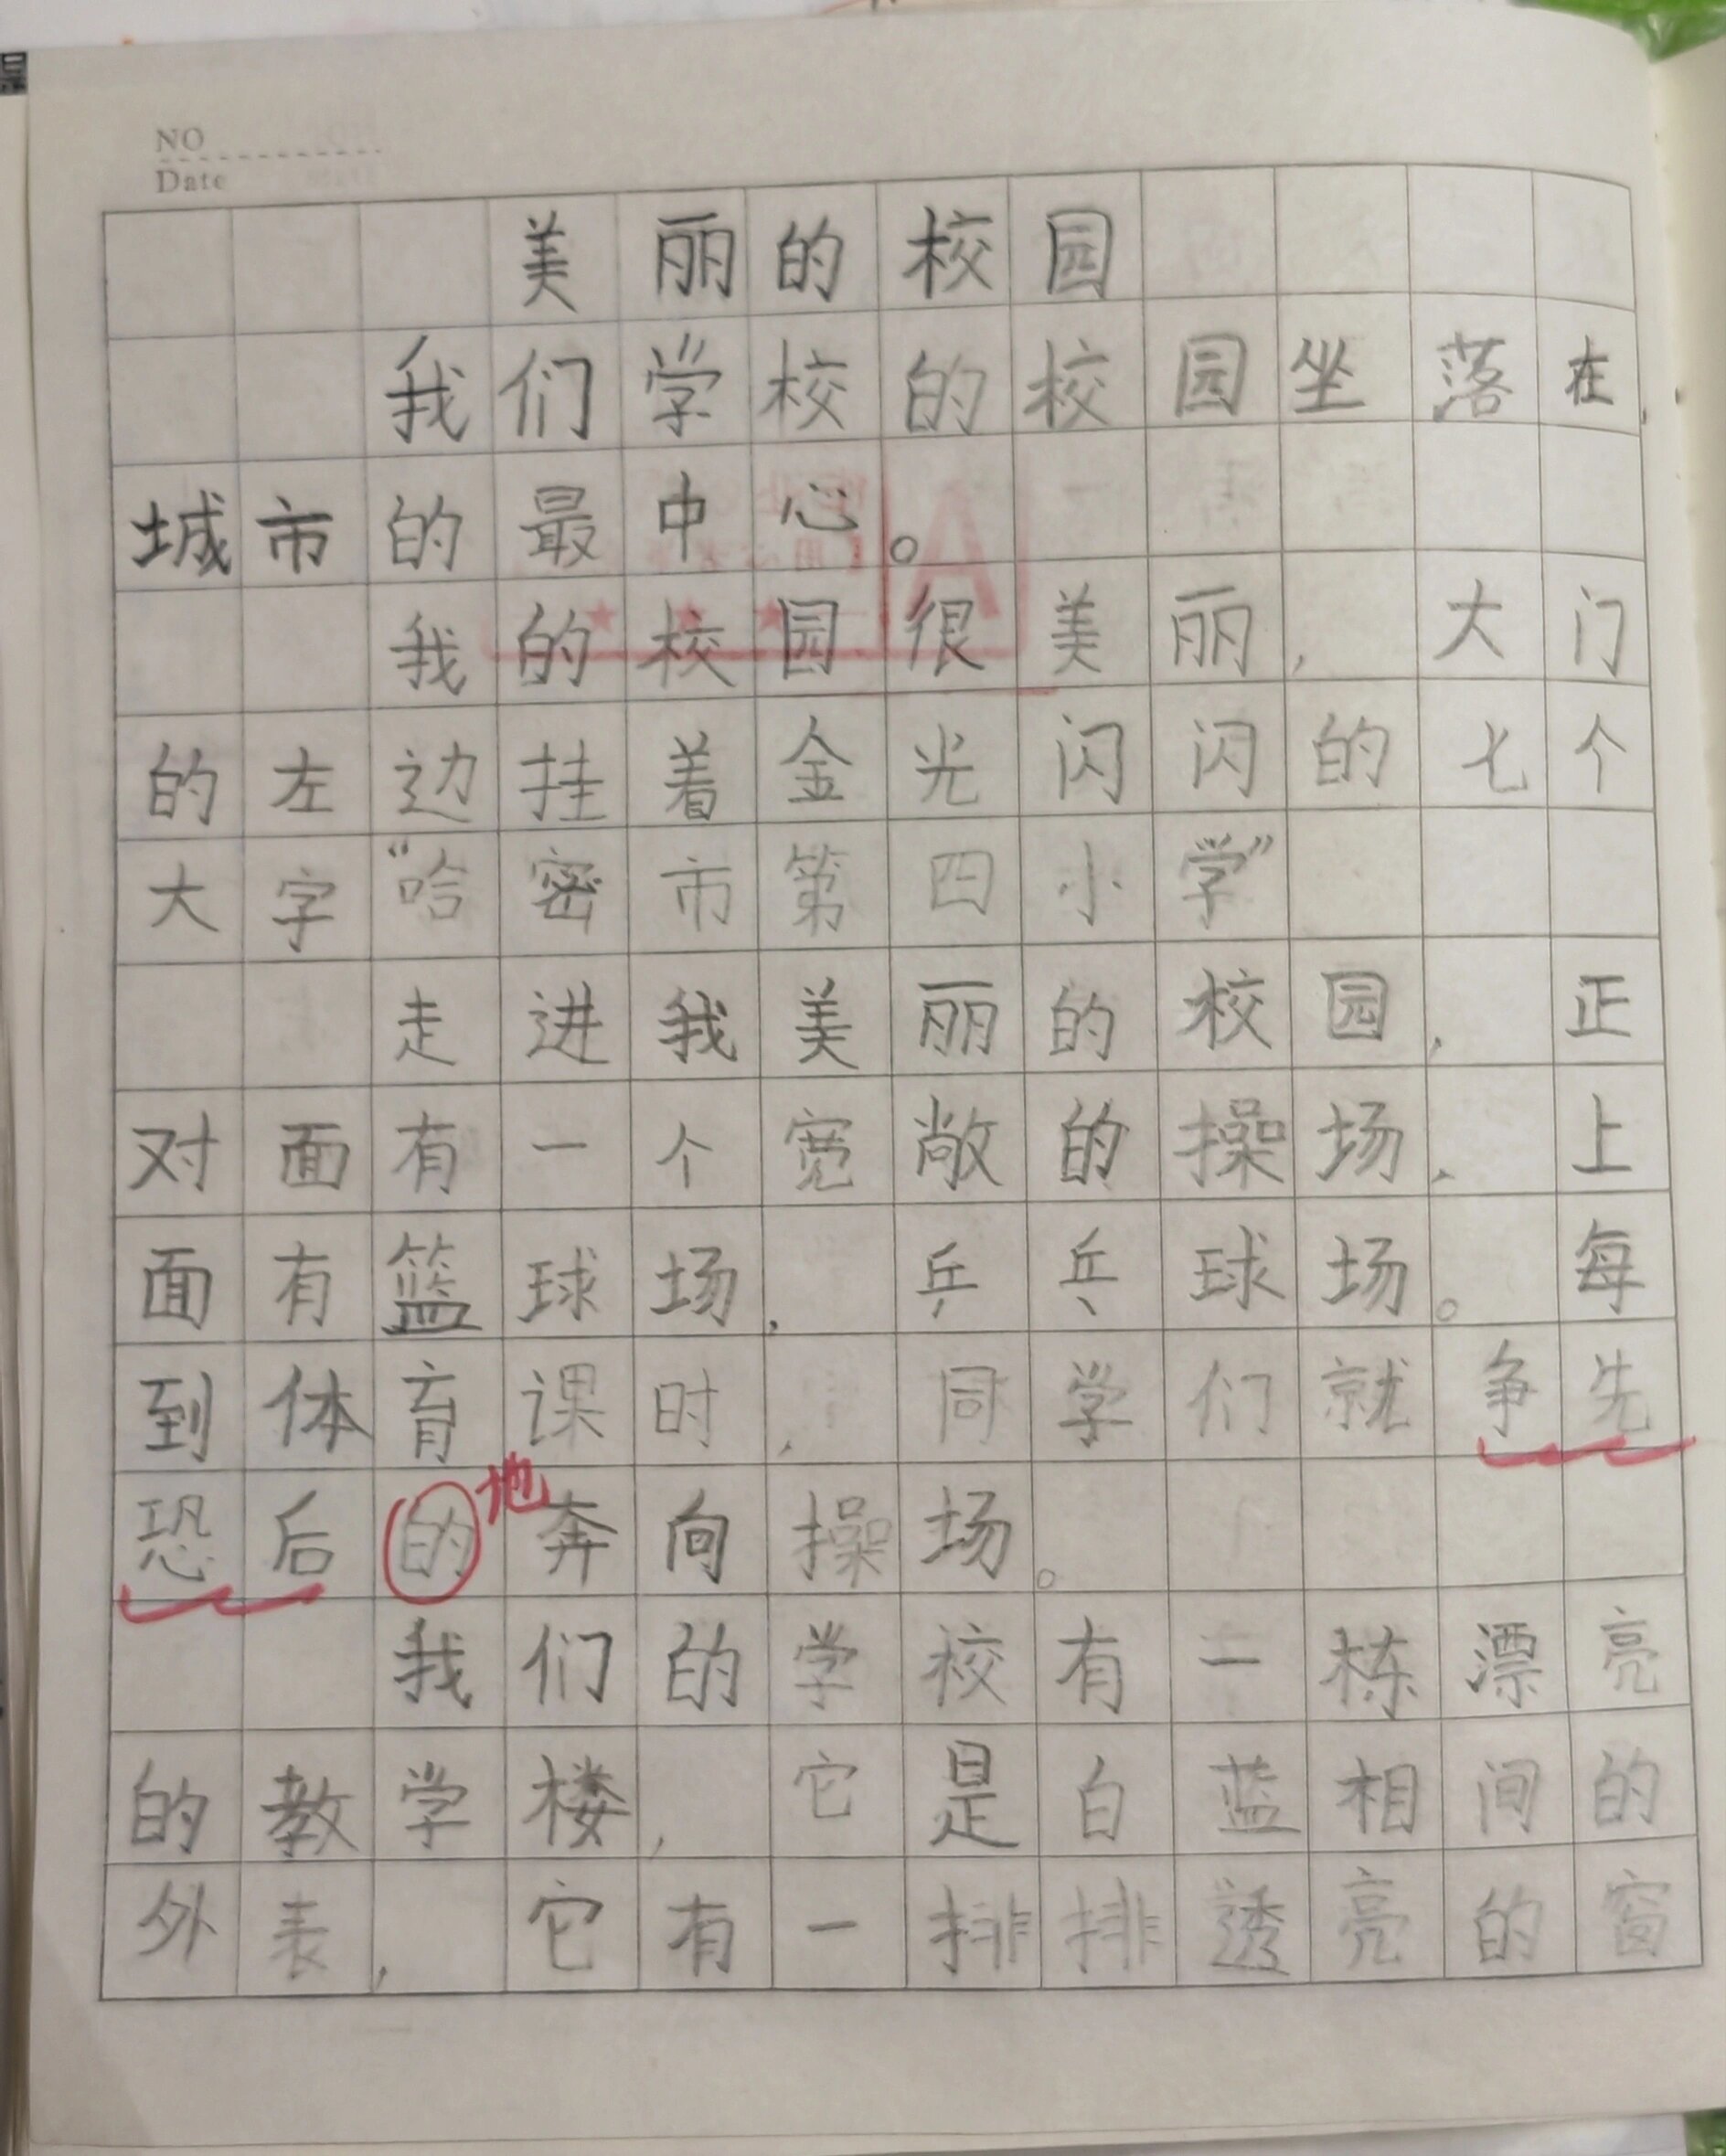 NO
Date
美丽的校园
我们学校的校园坐落在
城市的最中心。
我的校园很美丽,大门
的左边挂着金光闪闪的七个
大字“哈密市第四小学”
走进我美丽的校园,正
对面有一个宽敞的操场,上
面有篮球场,乒乓球场。每
到体育课时,同学们就争先
恐后的地奔向操场。
我们的学校有一栋漂亮
的教学楼,它是白蓝相间的
外表,它有一排排透亮的窗